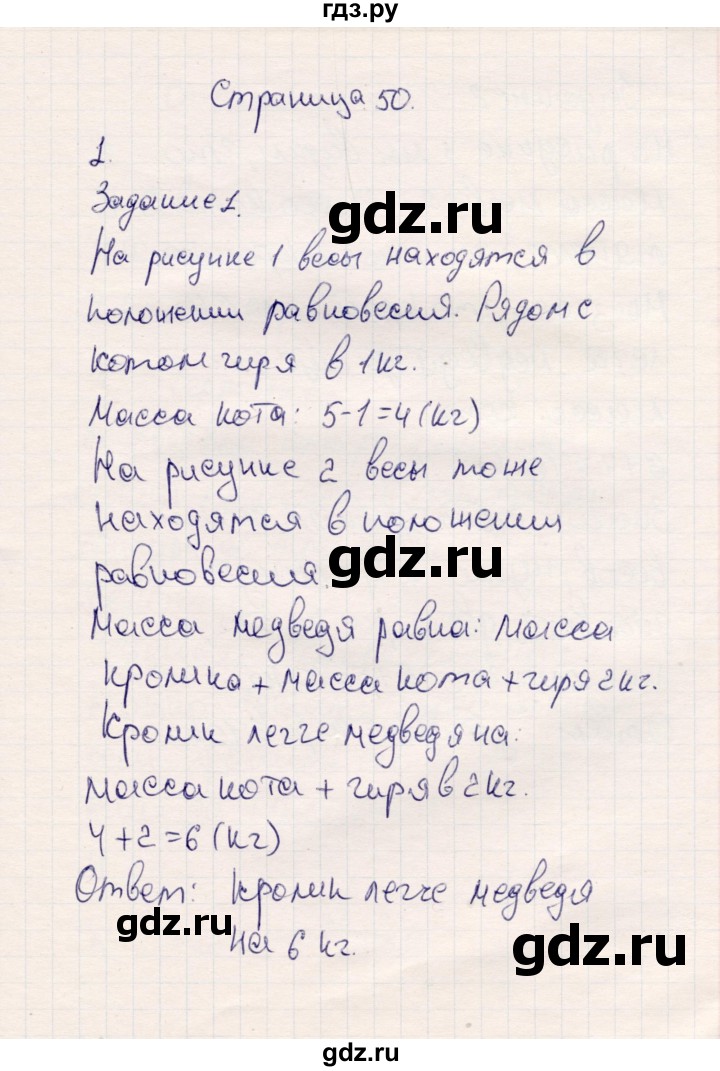 гдз.ру
Страница 50.
1.
Задание 1.
gdz.ru
На рисунке 1 весы находятся в
положении равновесия. Рядом с
котом гиря в 1 кг.
Масса кота: 5-1=4 (кг)
На рисунке 2 весы тоже
находятся в положении
равновесия.
gdz.ru
Масса медведя равна: масса
кролика + масса кота + гиря 2 кг.
Кролик легче медведя на:
масса кота + гиря в 2 кг.
4+2=6 (кг)
Ответ: кролик легче медведя
на 6 кг.
gdz.ru
gdz.ru
gdz.ru